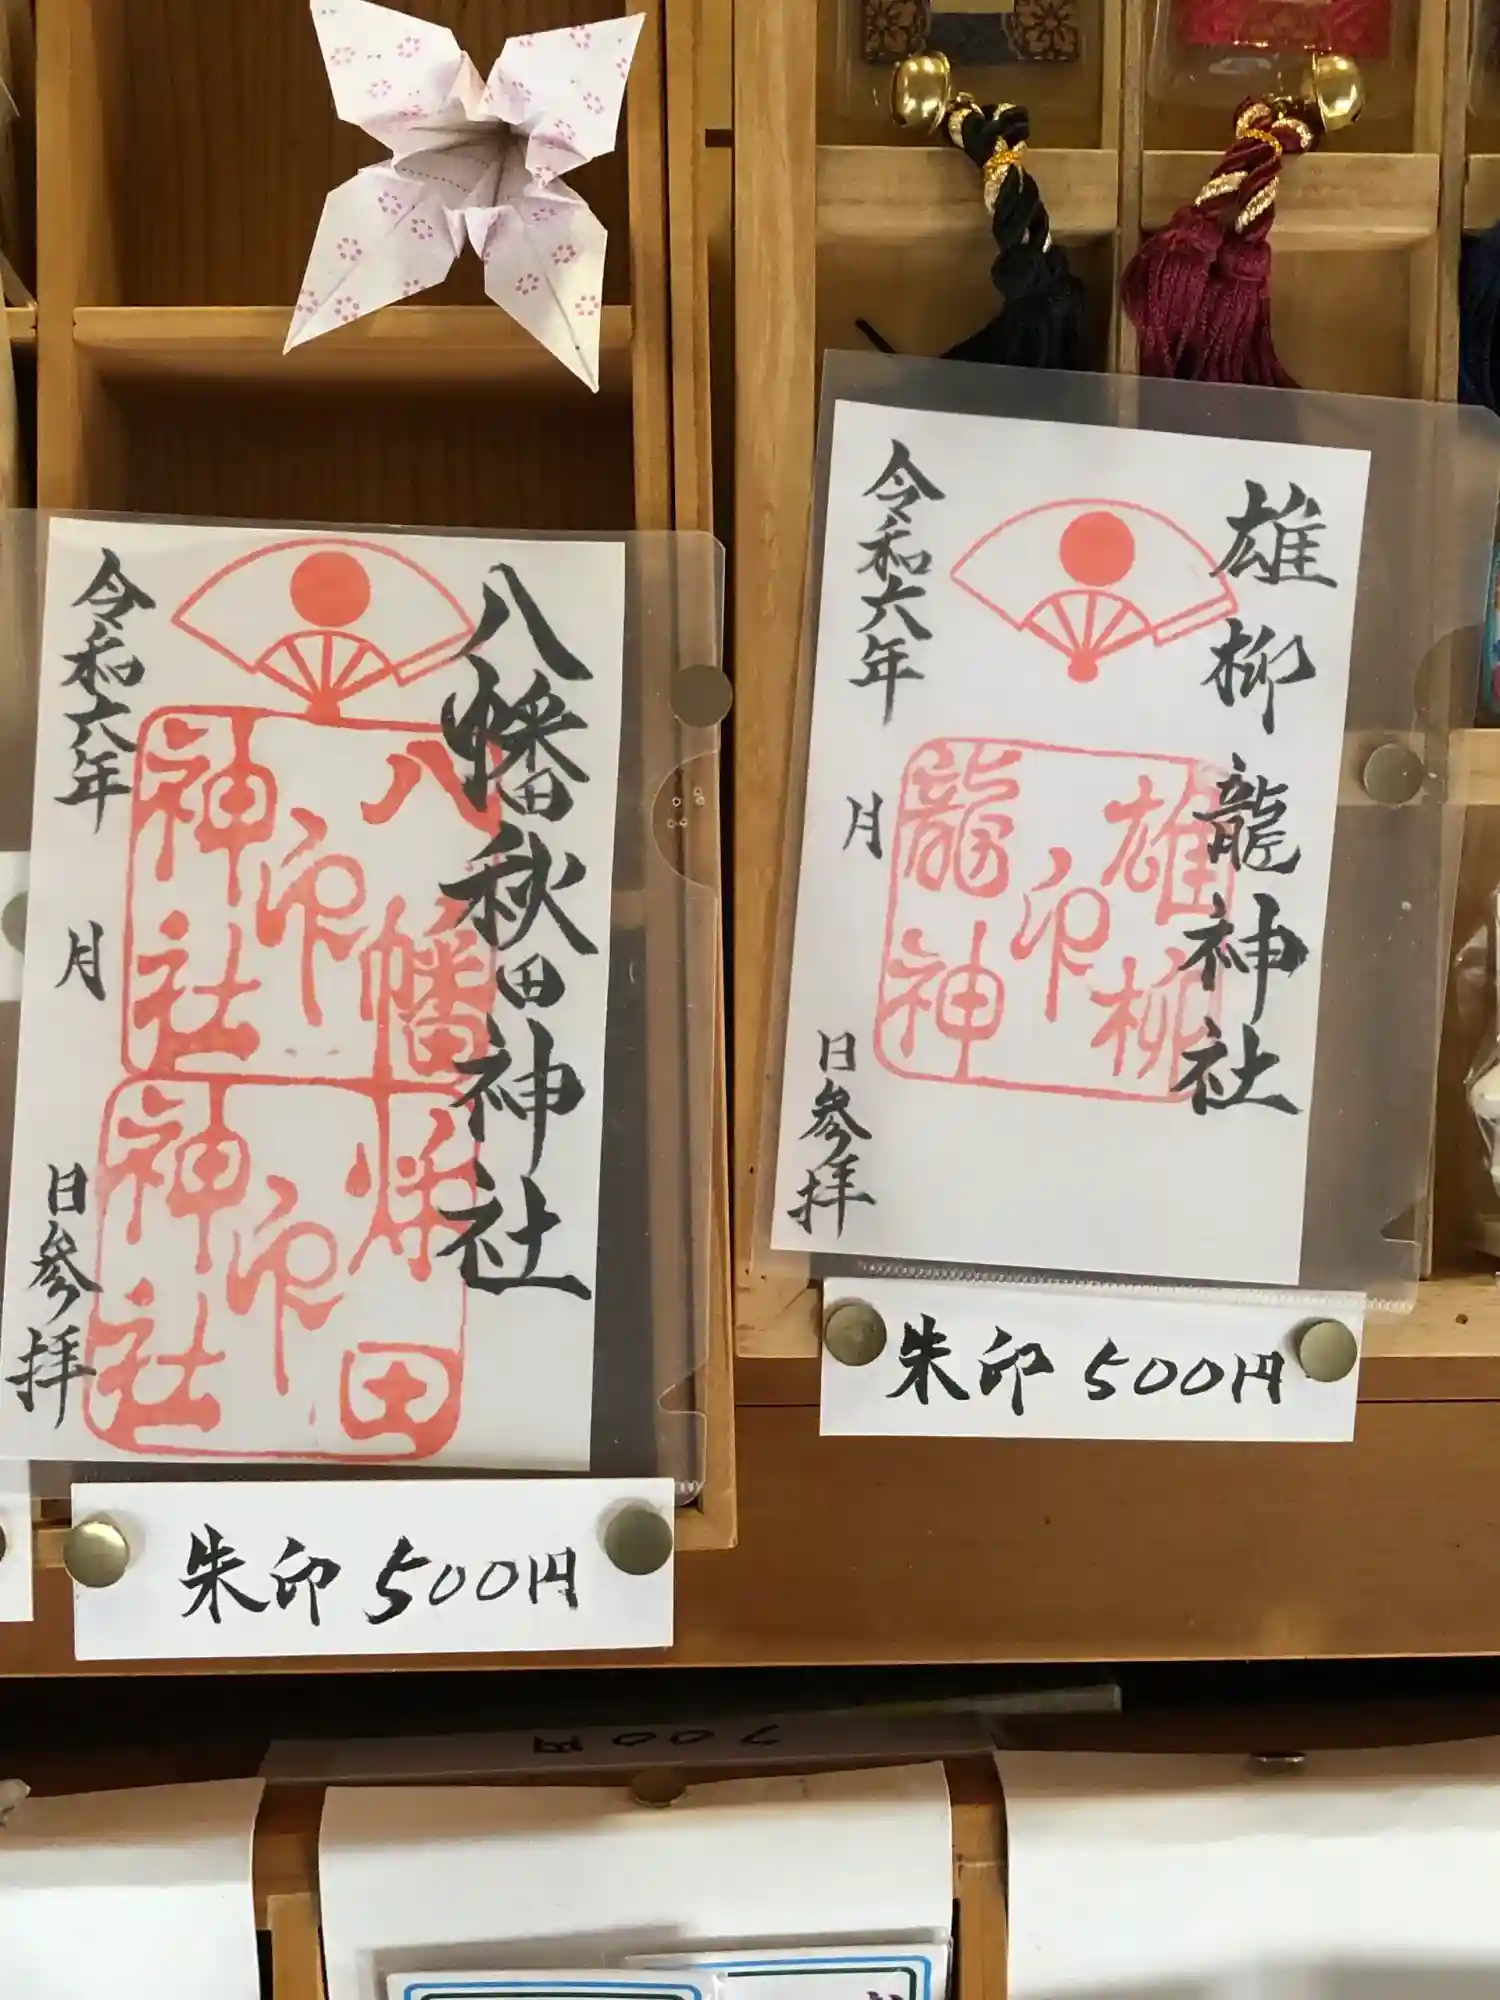 八幡秋田神社
八幡
印
神社
秋田
印
神社
令和六年　月　日参拝
朱印 500円
雄柳龍神社
雄柳
印
龍神
令和六年　月　日参拝
朱印 500円
700円